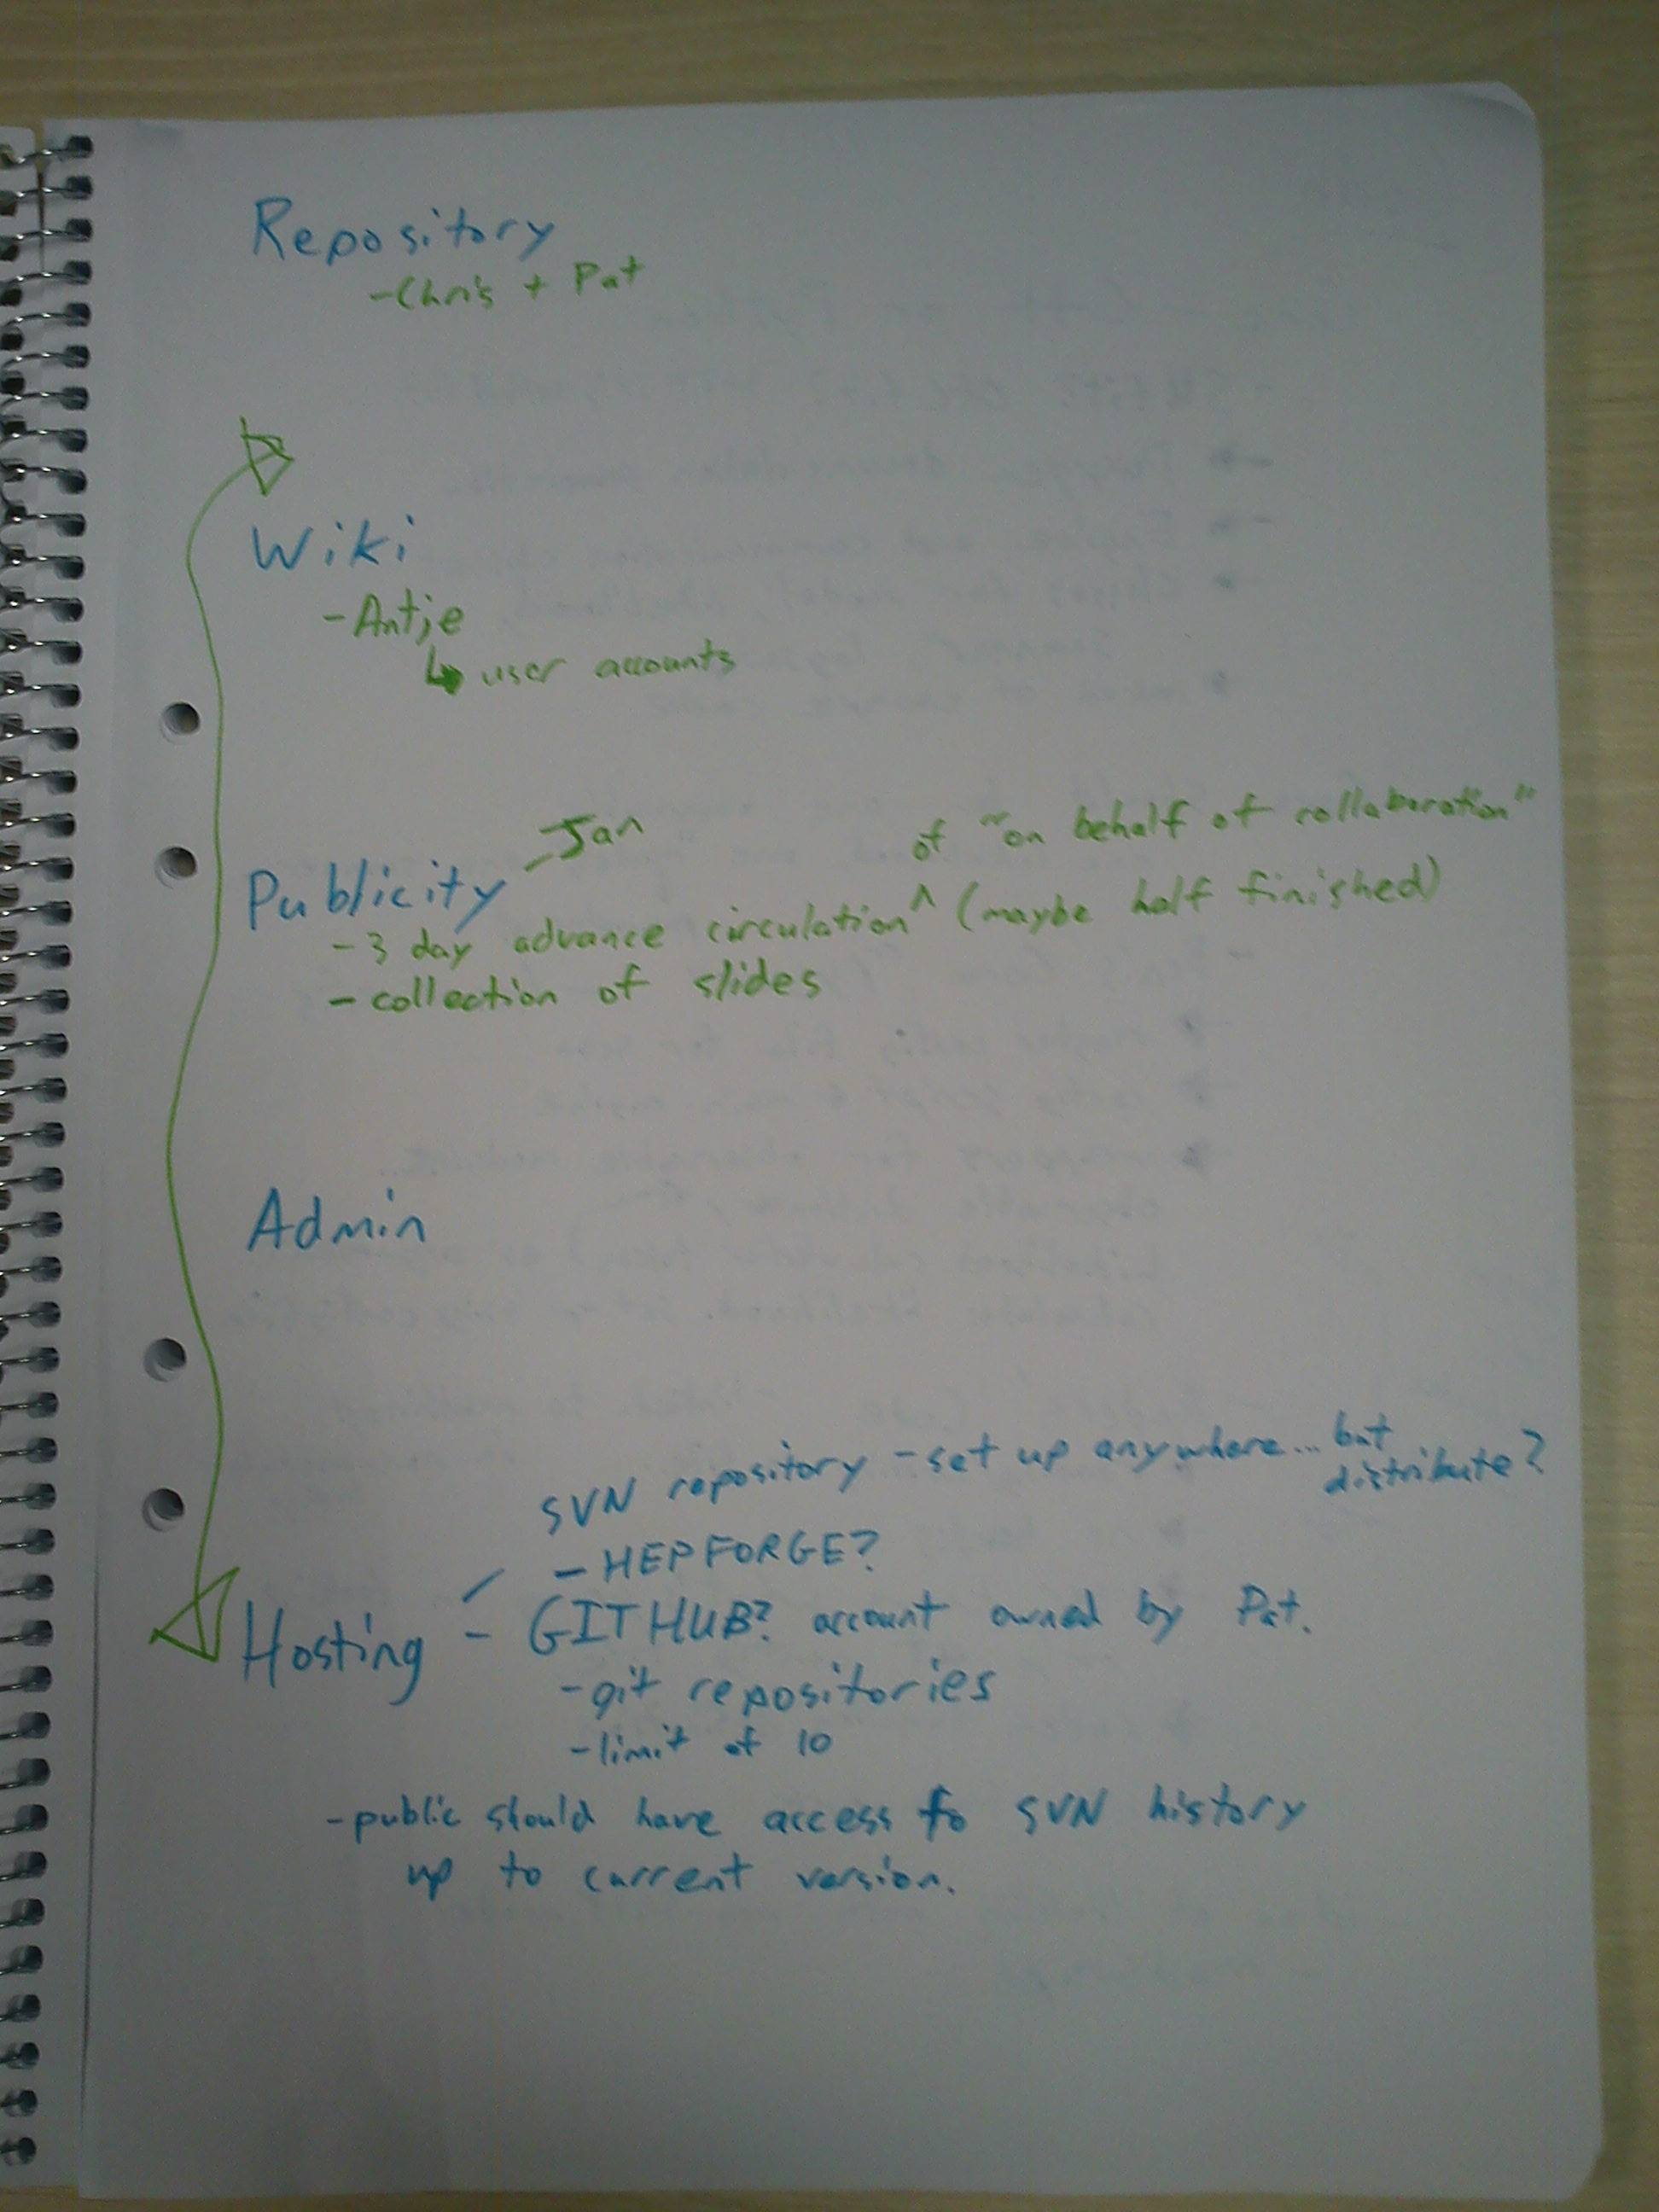 Repository
- Chris + Pat
Wiki
- Antje
↳ user accounts
Publicity - Jan
of "on behalf of collaboration"
- 3 day advance circulation ^ (maybe half finished)
- collection of slides
Admin
SVN repository - set up anywhere... but
distribute?
- HEPFORGE?
Hosting - GITHUB? account owned by Pat.
- git repositories
- limit of 10
- public should have access to SVN history
up to current version.